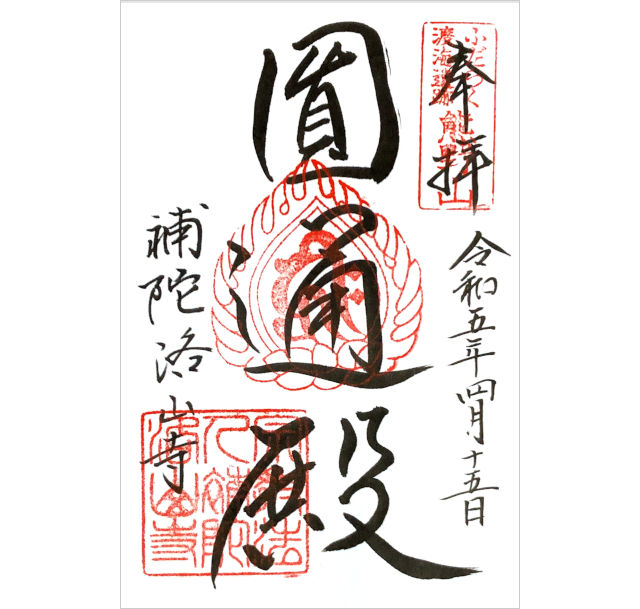 奉拝
令和五年四月十五日
圓通殿
補陀洛山寺